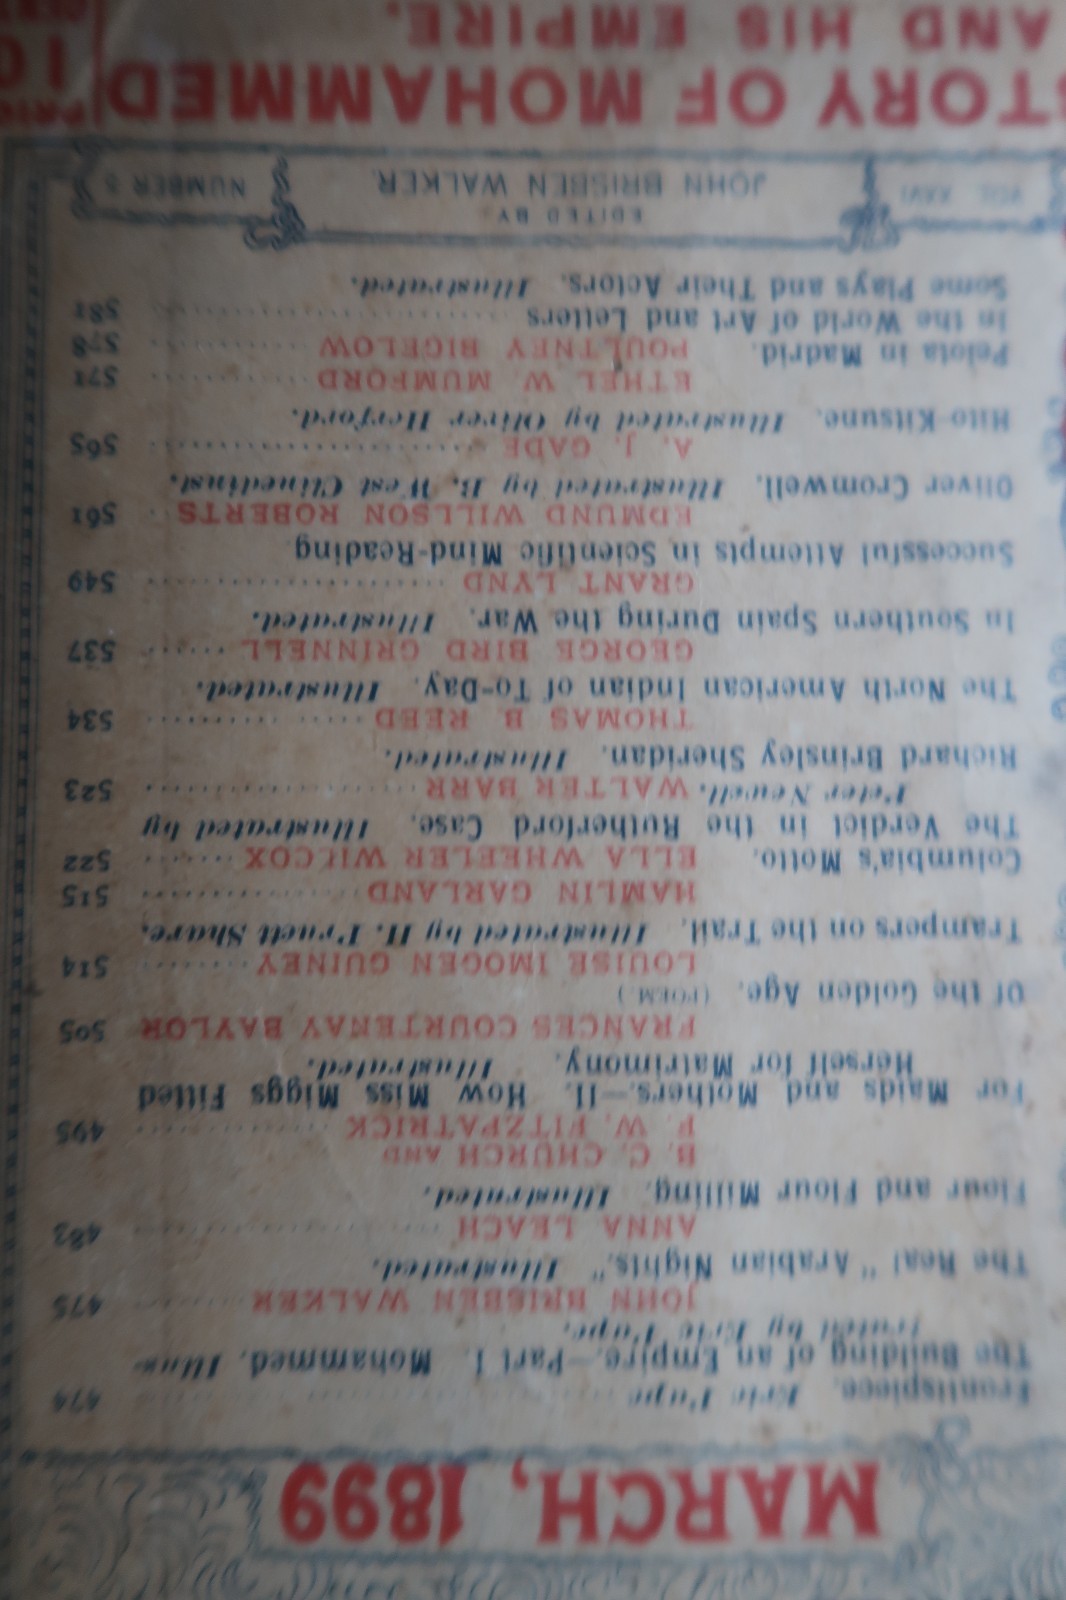 MARCH, 1899
Frontispiece. Eric Pape ........ 474
The Building of an Empire.—Part I. Mohammed. Illus-
trated by Eric Pape.
JOHN BRISBEN WALKER ........ 475
The Real "Arabian Nights." Illustrated.
ANNA LEACH ........ 483
Flour and Flour Milling. Illustrated.
B. C. CHURCH AND
F. W. FITZPATRICK ........ 495
For Maids and Mothers.—II. How Miss Miggs Fitted
Herself for Matrimony. Illustrated.
FRANCES COURTENAY BAYLOR 505
Of the Golden Age. (POEM.)
LOUISE IMOGEN GUINEY ........ 514
Trampers on the Trail. Illustrated by H. Pruett Share.
HAMLIN GARLAND ........ 515
Columbia's Motto. ELLA WHEELER WILCOX ........ 522
The Verdict in the Rutherford Case. Illustrated by
Peter Newell. WALTER BARR ........ 523
Richard Brinsley Sheridan. Illustrated.
THOMAS B. REED ........ 534
The North American Indian of To-Day. Illustrated.
GEORGE BIRD GRINNELL ...... 537
In Southern Spain During the War. Illustrated.
GRANT LYND ........ 549
Successful Attempts in Scientific Mind-Reading
EDMUND WILLSON ROBERTS . 561
Oliver Cromwell. Illustrated by B. West Clinedinst.
A. J. GADE ........ 565
Hito-Kitsune. Illustrated by Oliver Herford.
ETHEL W. MUMFORD ........ 571
Pelota in Madrid. POULTNEY BIGELOW ........ 578
In the World of Art and Letters ........ 581
Some Plays and Their Actors. Illustrated.
EDITED BY
VOL. XXVI JOHN BRISBEN WALKER. NUMBER 5
STORY OF MOHAMMED
AND HIS EMPIRE.
PRICE
10